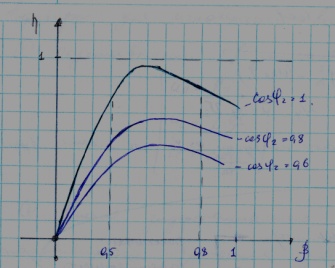 η
1
cosφ₂ = 1
cosφ₂ = 0,8
cosφ₂ = 0,6
0,5 0,8 1 β